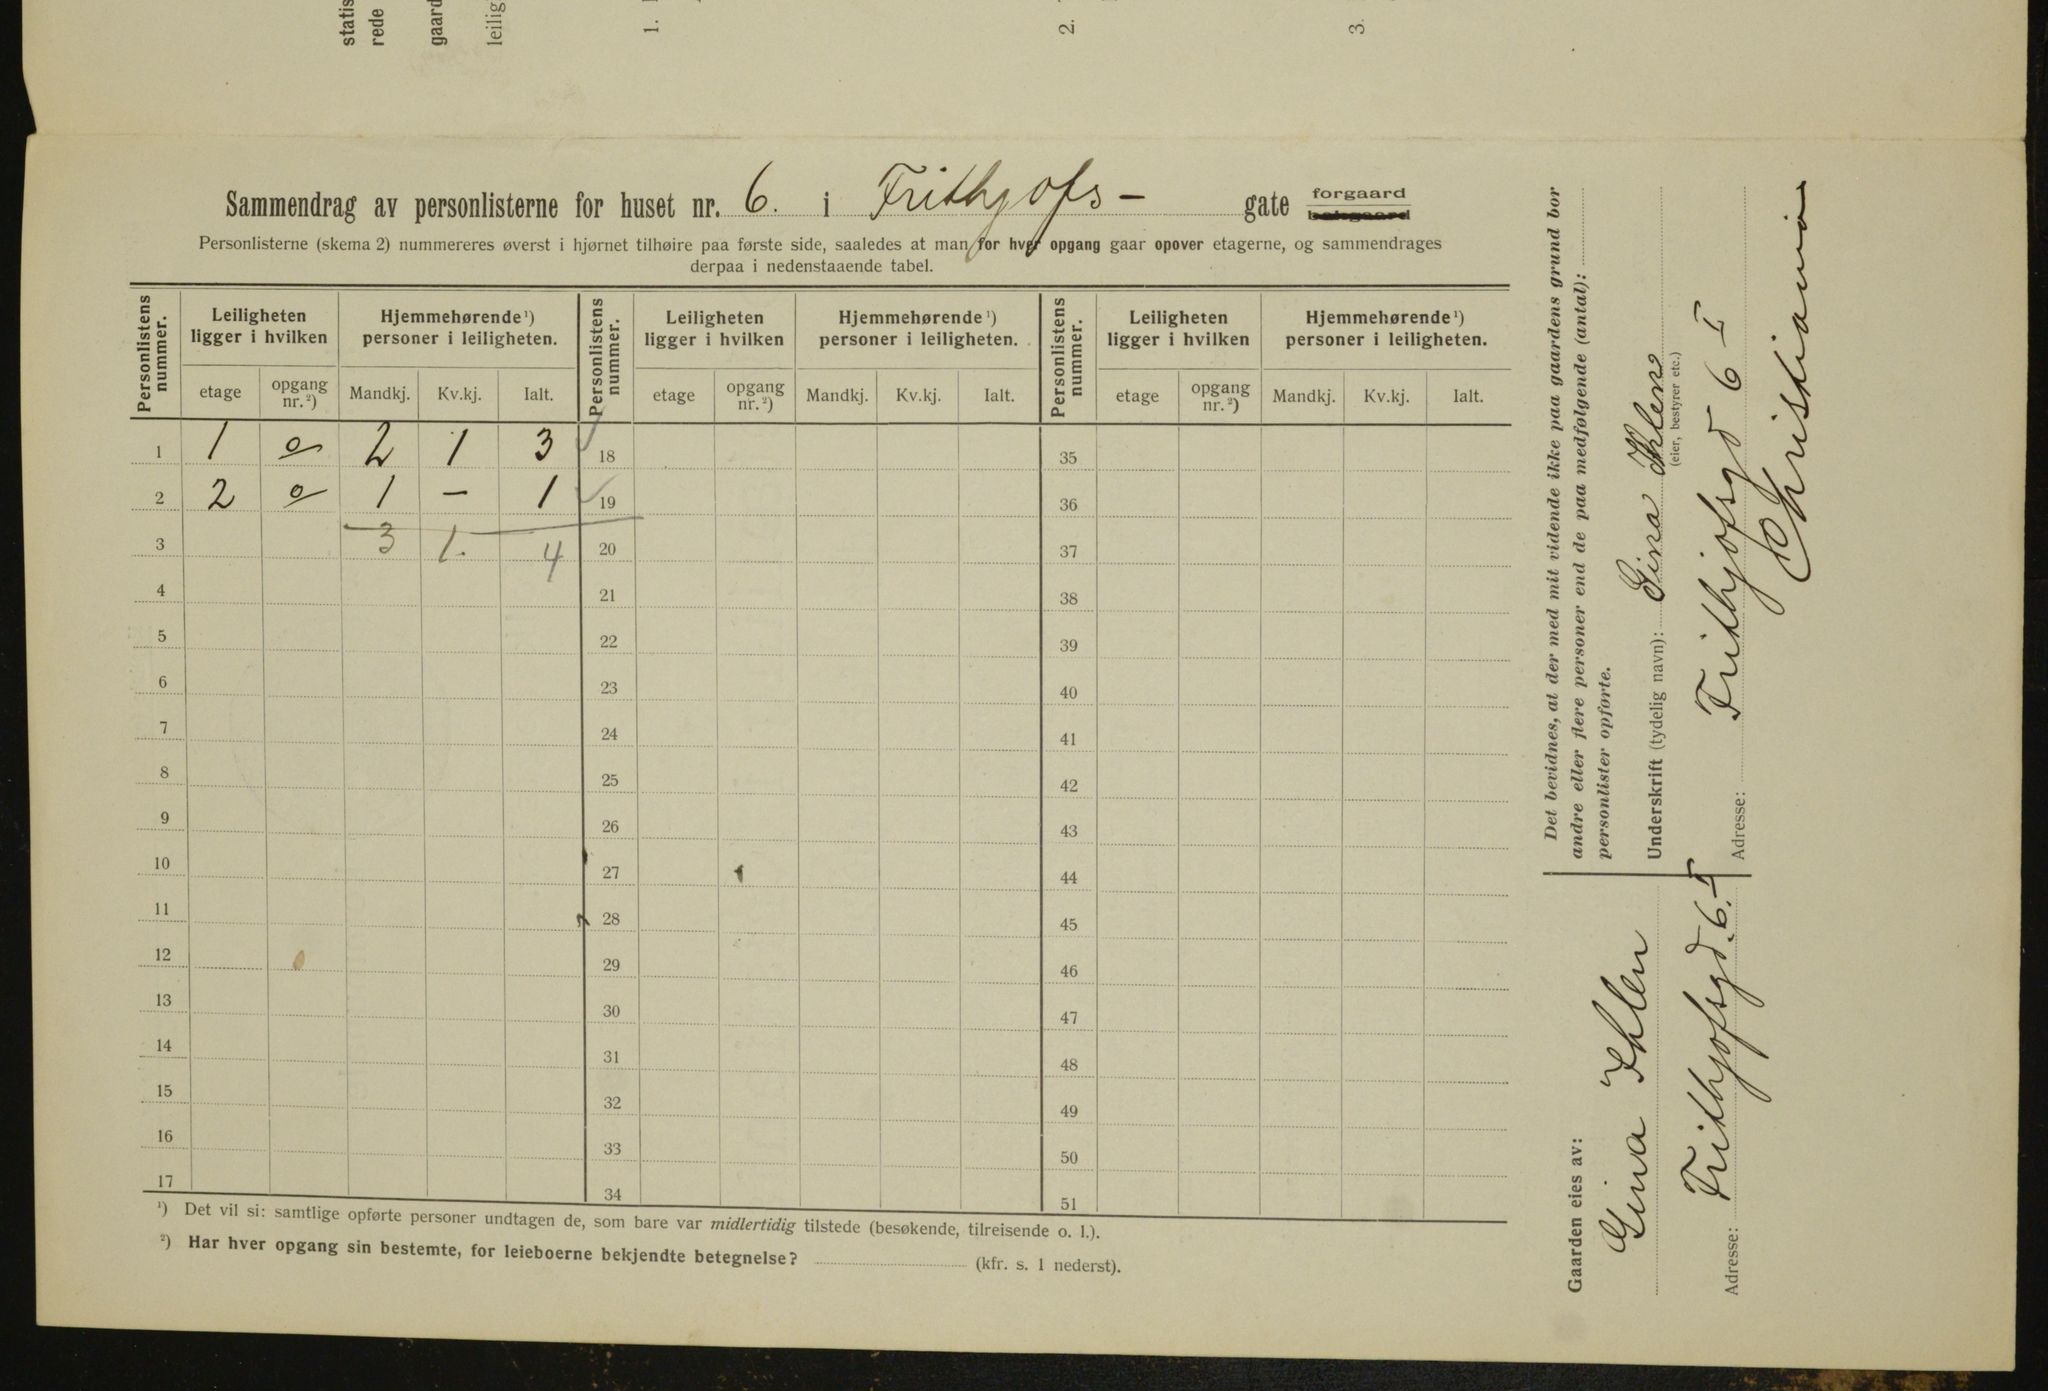 statis
rede
gaard
leilig
1.
2.
3.
Sammendrag av personlisterne for huset nr. 6. i Frithjofs - gate forgaard
bakgaard
Personlisterne (skema 2) nummereres øverst i hjørnet tilhøire paa første side, saaledes at man for hver opgang gaar opover etagerne, og sammendrages
derpaa i nedenstaaende tabel.
Personlistens nummer. | Leiligheten ligger i hvilken | Hjemmehørende ¹) personer i leiligheten. | Personlistens nummer. | Leiligheten ligger i hvilken | Hjemmehørende ¹) personer i leiligheten. | Personlistens nummer. | Leiligheten ligger i hvilken | Hjemmehørende ¹) personer i leiligheten.
etage | opgang nr. ²) | Mandkj. | Kv.kj. | Ialt. | etage | opgang nr. ²) | Mandkj. | Kv.kj. | Ialt. | etage | opgang nr. ²) | Mandkj. | Kv.kj. | Ialt.
1 | 1 | o | 2 | 1 | 3 | 18 | 35
2 | 2 | o | 1 | – | 1 | 19 | 36
3 | 3 | 1. | 4 | 20 | 37
4 | 21 | 38
5 | 22 | 39
6 | 23 | 40
7 | 24 | 41
8 | 25 | 42
9 | 26 | 43
10 | 27 | 44
11 | 28 | 45
12 | 29 | 46
13 | 30 | 47
14 | 31 | 48
15 | 32 | 49
16 | 33 | 50
17 | 34 | 51
¹) Det vil si: samtlige opførte personer undtagen de, som bare var midlertidig tilstede (besøkende, tilreisende o. l.).
²) Har hver opgang sin bestemte, for leieboerne bekjendte betegnelse? (kfr. s. 1 nederst).
Det bevidnes, at der med mit vidende ikke paa gaardens grund bor
andre eller flere personer end de paa medfølgende (antal):
personlister opførte.
Underskrift (tydelig navn): Gina Ihlen
(eier, bestyrer etc.)
Adresse: Frithjofsgd 6 I
Christiania
Gaarden eies av:
Gina Ihlen
Adresse: Frithjofsgd. 6. I